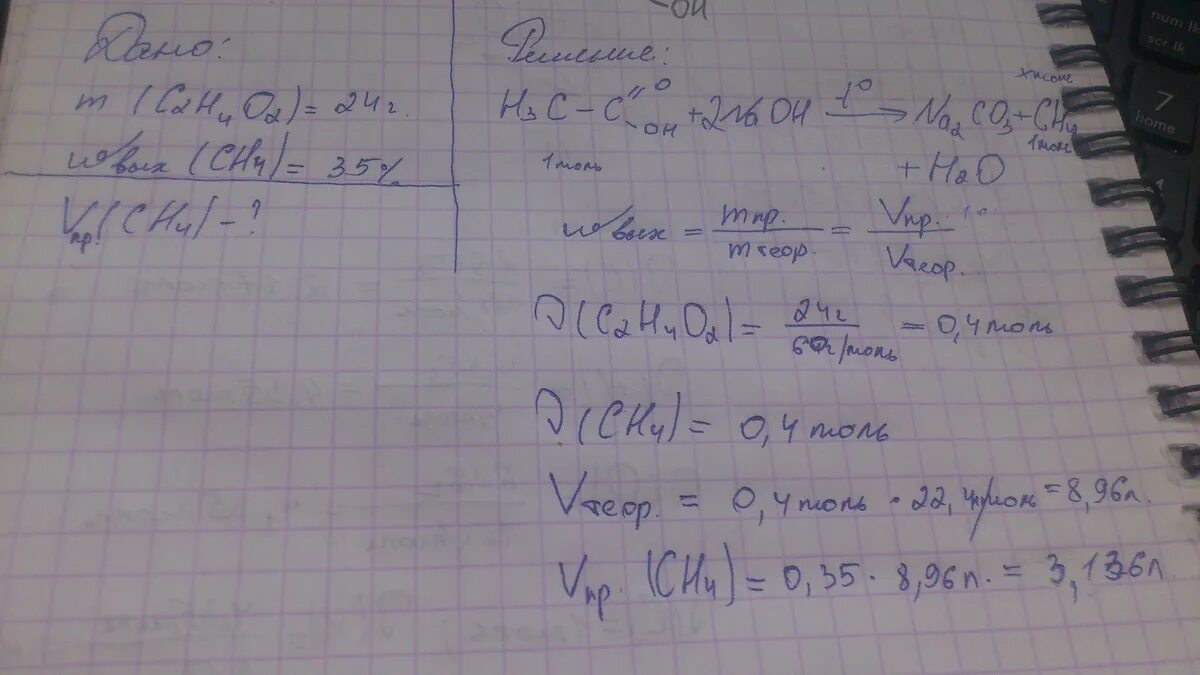 -OH
Дано:
m (C2H4O2) = 24г.
ω вых (CH4) = 35%
Vпр.(CH4) - ?
Решение:
x моль
H3C - C =O -OH + 2NaOH t° → Na2CO3 + CH4
1 моль 1 моль
+ H2O
ω вых = mпр. / mтеор. = Vпр. / Vтеор.
ν(C2H4O2) = 24г / 60г/моль = 0,4 моль
ν(CH4) = 0,4 моль
Vтеор. = 0,4 моль · 22,4л/моль = 8,96л.
Vпр. (CH4) = 0,35 · 8,96л. = 3,136л
num lk
scr lk
7
home